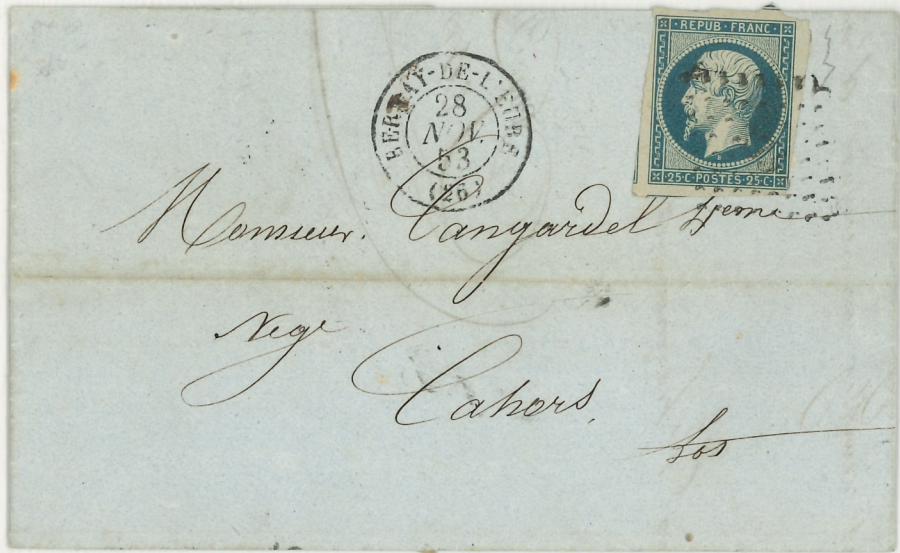 REPUB FRANC
25·C·POSTES·25·C
BERNAY-DE-L'EURE
28
NOV.
53
(26)
Monsieur. Cangardel
Nege
Cahors,
Lot